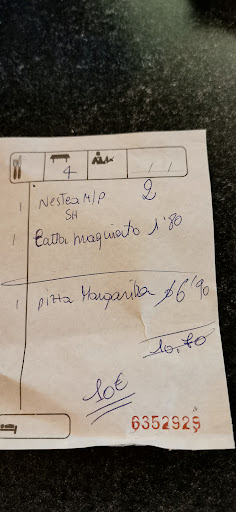 4 / /
1 Nestea M/P 2
SH
1 Caffe maquiato 1'80
1 pizza Margarita 6'90
10,70
10€
6352925